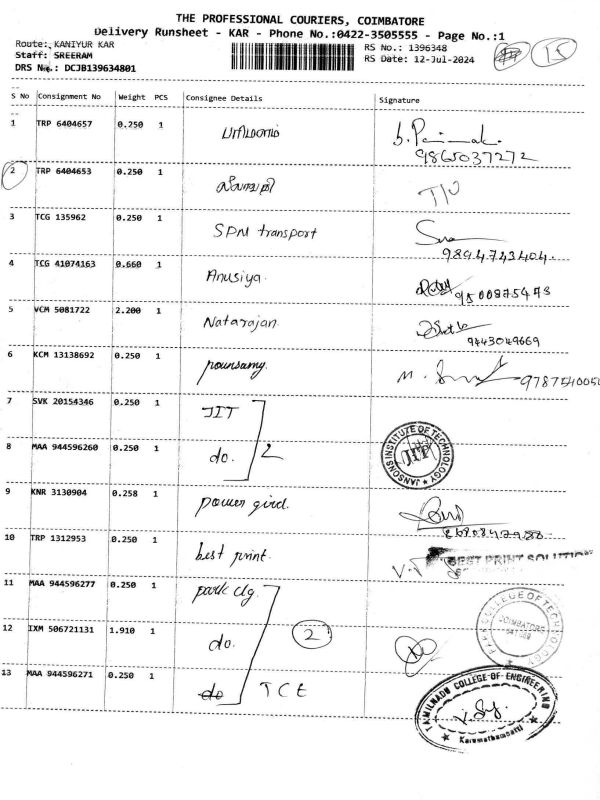 THE PROFESSIONAL COURIERS, COIMBATORE
Delivery Runsheet - KAR - Phone No.:0422-3505555 - Page No.:1
Route: KANIYUR KAR
RS No.: 1396348
15
Staff: SREERAM
RS Date: 12-Jul-2024
DRS No.: DCJB139634801
S No Consignment No Weight PCS Consignee Details Signature
1 TRP 6404657 0.250 1
9865037272
2 TRP 6404653 0.250 1
3 TCG 135962 0.250 1 SPM transport
9894743404.
4 TCG 41074163 0.660 1 Anusiya.
9500875473
5 VCM 5081722 2.200 1 Natarajan
9443049669
6 KCM 13138692 0.250 1 pounsamy. M.
7 SVK 20154346 0.250 1 JIT
8 MAA 944596260 0.250 1 do. 2
JANSONS INSTITUTE OF TECHNOLOGY
JIT
9 KNR 3130904 0.258 1 power gird.
10 TRP 1312953 0.250 1 best print.
BEST PRINT SOLUTION
11 MAA 944596277 0.250 1 park clg.
PARK COLLEGE OF TECHNOLOGY
COIMBATORE
12 IXM 506721131 1.910 1 do. 2
13 MAA 944596271 0.250 1 do TCE
TAMILNADU COLLEGE OF ENGINEERING
Karumathampatti